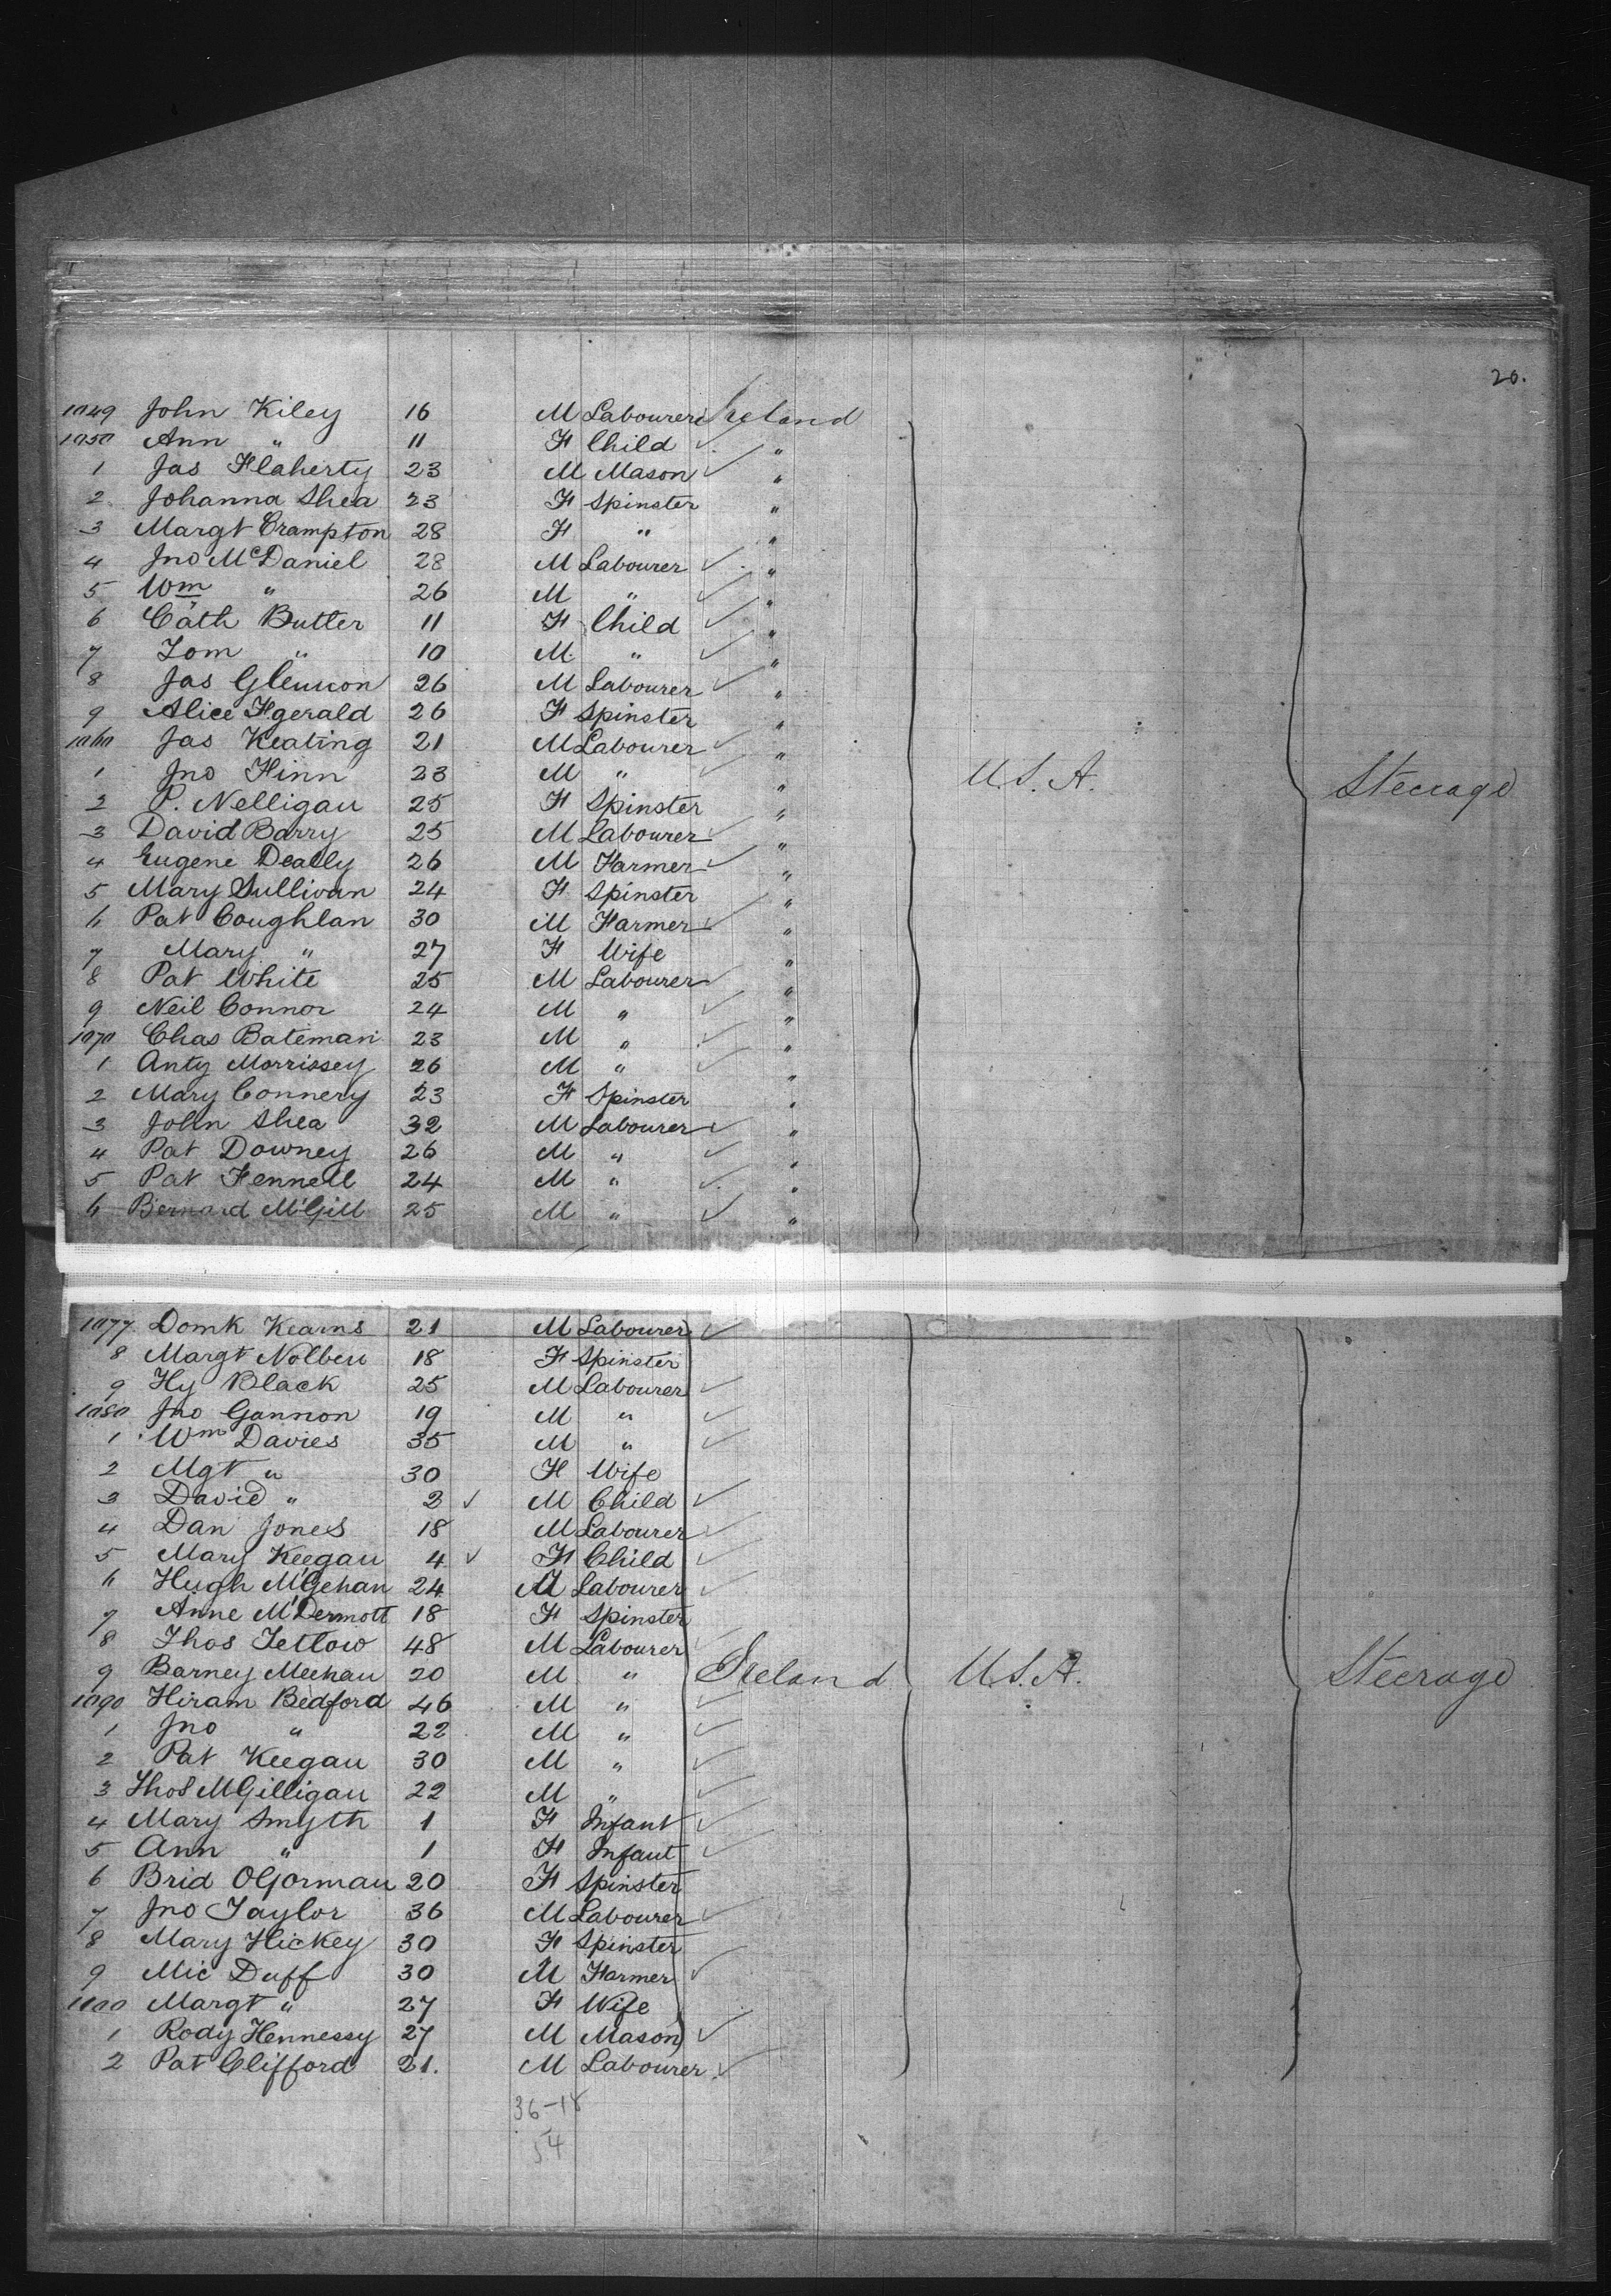 20.
1049 John Kiley 16 M Labourer Ireland
1050 Ann " 11 F Child "
1 Jas Flaherty 23 M Mason "
2 Johanna Shea 23 F Spinster "
3 Margt Crampton 28 F " "
4 Jno McDaniel 28 M Labourer "
5 Wm " 26 M " "
6 Cath Butler 11 F Child "
7 Tom " 10 M " "
8 Jas Glennon 26 M Labourer "
9 Alice Fgerald 26 F Spinster "
1060 Jas Keating 21 M Labourer "
1 Jno Finn 23 M " " U.S.A. Steerage
2 P. Nelligan 25 F Spinster "
3 David Barry 25 M Labourer "
4 Eugene Deally 26 M Farmer "
5 Mary Sullivan 24 F Spinster "
6 Pat Coughlan 30 M Farmer "
7 Mary " 27 F Wife "
8 Pat White 25 M Labourer "
9 Neil Connor 24 M " "
1070 Chas Bateman 23 M " "
1 Anty Morrissey 26 M " "
2 Mary Connery 23 F Spinster "
3 John Shea 32 M Labourer "
4 Pat Downey 26 M " "
5 Pat Fennell 24 M " "
6 Bernard McGill 25 M " "
1077 Domk Kearns 21 M Labourer
8 Margt Nolben 18 F Spinster
9 Hy Black 25 M Labourer
1080 Jno Gannon 19 M "
1 Wm Davies 35 M "
2 Mgt " 30 F Wife
3 David " 2 M Child
4 Dan Jones 18 M Labourer
5 Mary Keegan 4 F Child
6 Hugh McGehan 24 M Labourer
7 Anne McDermott 18 F Spinster
8 Thos Tetlow 48 M Labourer
9 Barney Meehan 20 M " Ireland U.S.A. Steerage
1090 Hiram Bedford 46 M "
1 Jno " 22 M "
2 Pat Keegan 30 M "
3 Thos McGilligan 22 M "
4 Mary Smyth 1 F Infant
5 Ann " 1 F Infant
6 Brid OGorman 20 F Spinster
7 Jno Taylor 36 M Labourer
8 Mary Hickey 30 F Spinster
9 Mic Duff 30 M Farmer
1100 Margt " 27 F Wife
1 Rody Hennessy 27 M Mason
2 Pat Clifford 21. M Labourer
36-18
54